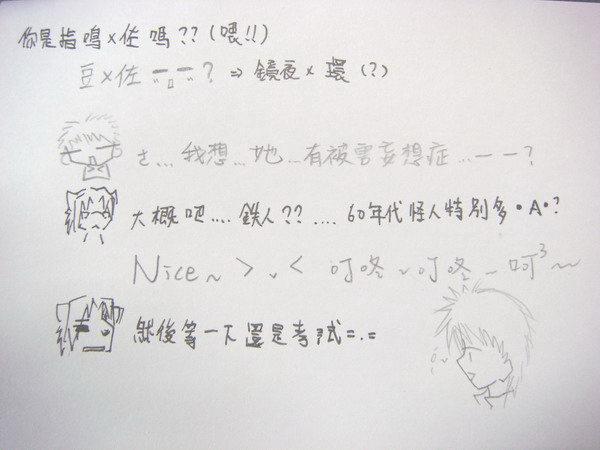 你是指鳴×佐嗎??(喂!!)
豆×佐 =□=? ⇒鏡夜×環(?)
さ...我想...她...有被害妄想症...一一?
大概吧....鉄人??....60年代怪人特別多·A·?
Nice~ >、< 叮咚~叮咚~呵³~~
然後等一下還是考試=.=